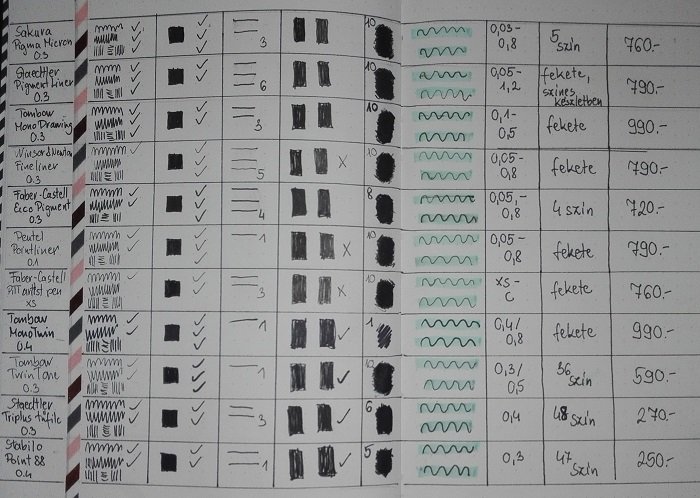 Sakura
Pigma Micron
0.3
3
10
0,03-
0,8
5
szín
760.-
Staedtler
Pigment Liner
0.3
6
10
0,05-
1,2
fekete,
színes
készletben
790.-
Tombow
Mono Drawing
0.3
3
10
0,1-
0,5
fekete
990.-
Winsor&Newton
Fineliner
0.3
5
X
10
0,05-
0,8
fekete
790.-
Faber-Castell
Ecco Pigment
0.3
4
8
0,05,-
0,8
4 szín
720.-
Pentel
Pointliner
0.1
1
X
10
0,05-
0,8
fekete
790.-
Faber-Castell
PITT artist pen
XS
3
X
10
XS-
C
fekete
760.-
Tombow
MonoTwin
0.4
1
1
0,4/
0,8
fekete
990.-
Tombow
TwinTone
0.3
1
10
0,3/
0,5
36
szín
590.-
Staedtler
Triplus
0.3
3
6
0,4
48 szín
270.-
Stabilo
Point 88
0.4
1
5
0,3
47
szín
250.-